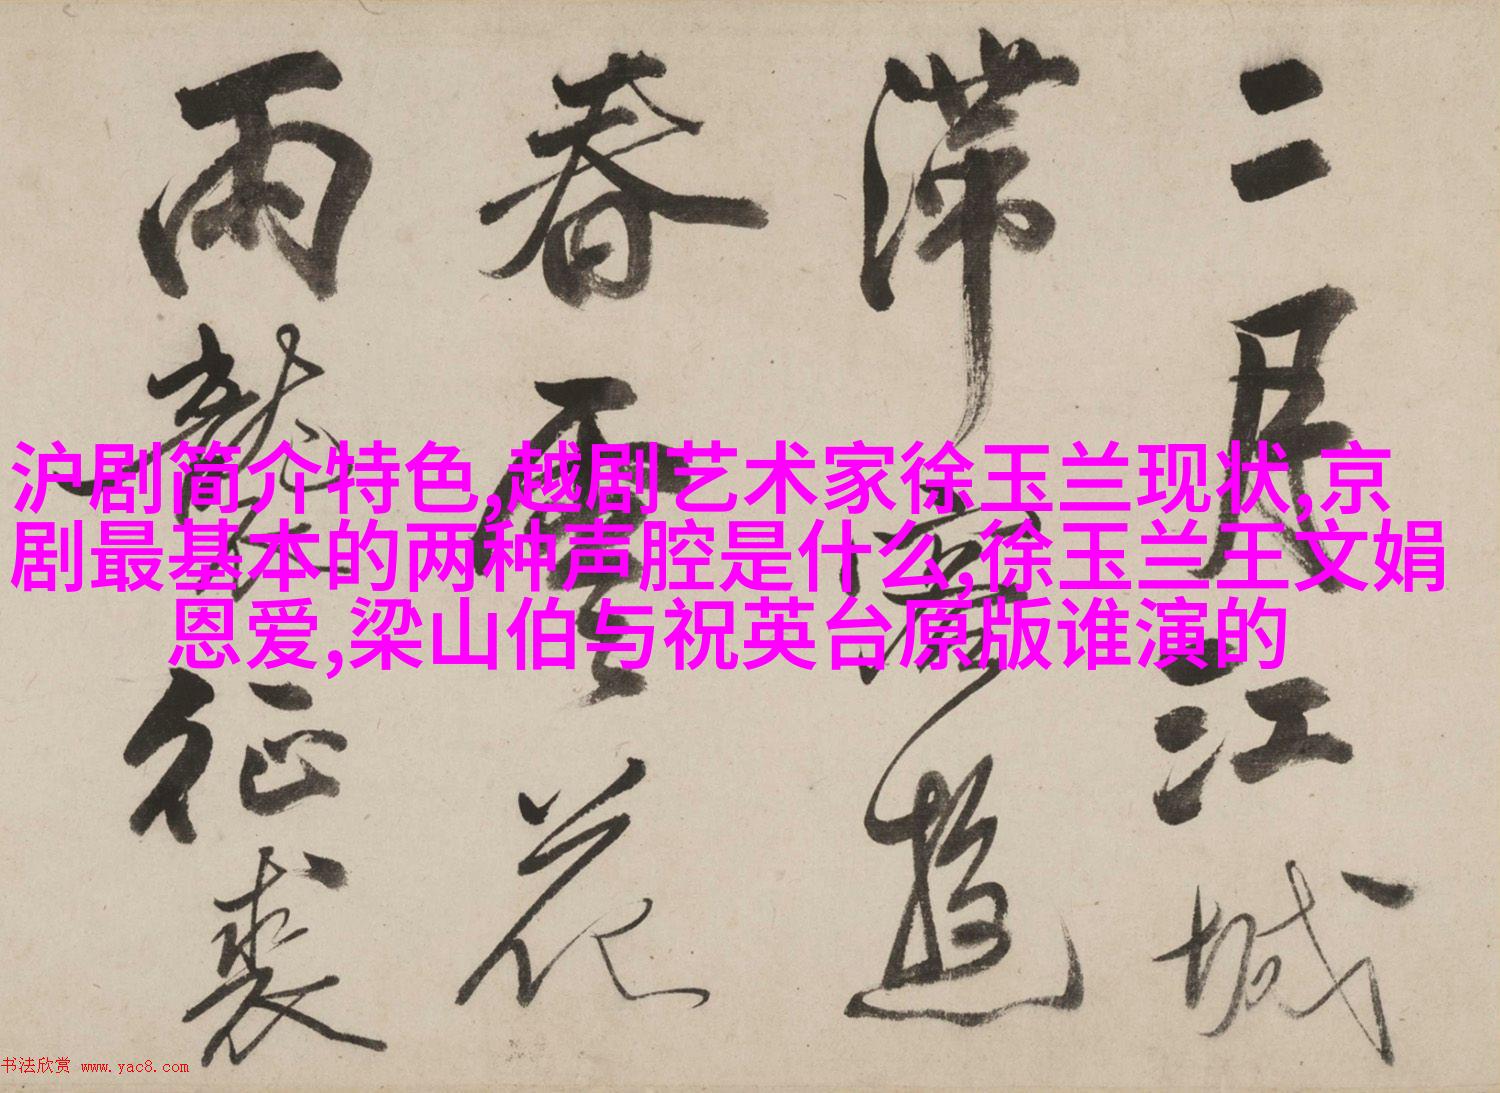 二月江城
滞遊
春雲花
雨襲征裘
沪剧简介特色,越剧艺术家徐玉兰现状,京
剧最基本的两种声腔是什么,徐玉兰王文娟
恩爱,梁山伯与祝英台原版谁演的
书法欣赏 www.yac8.com